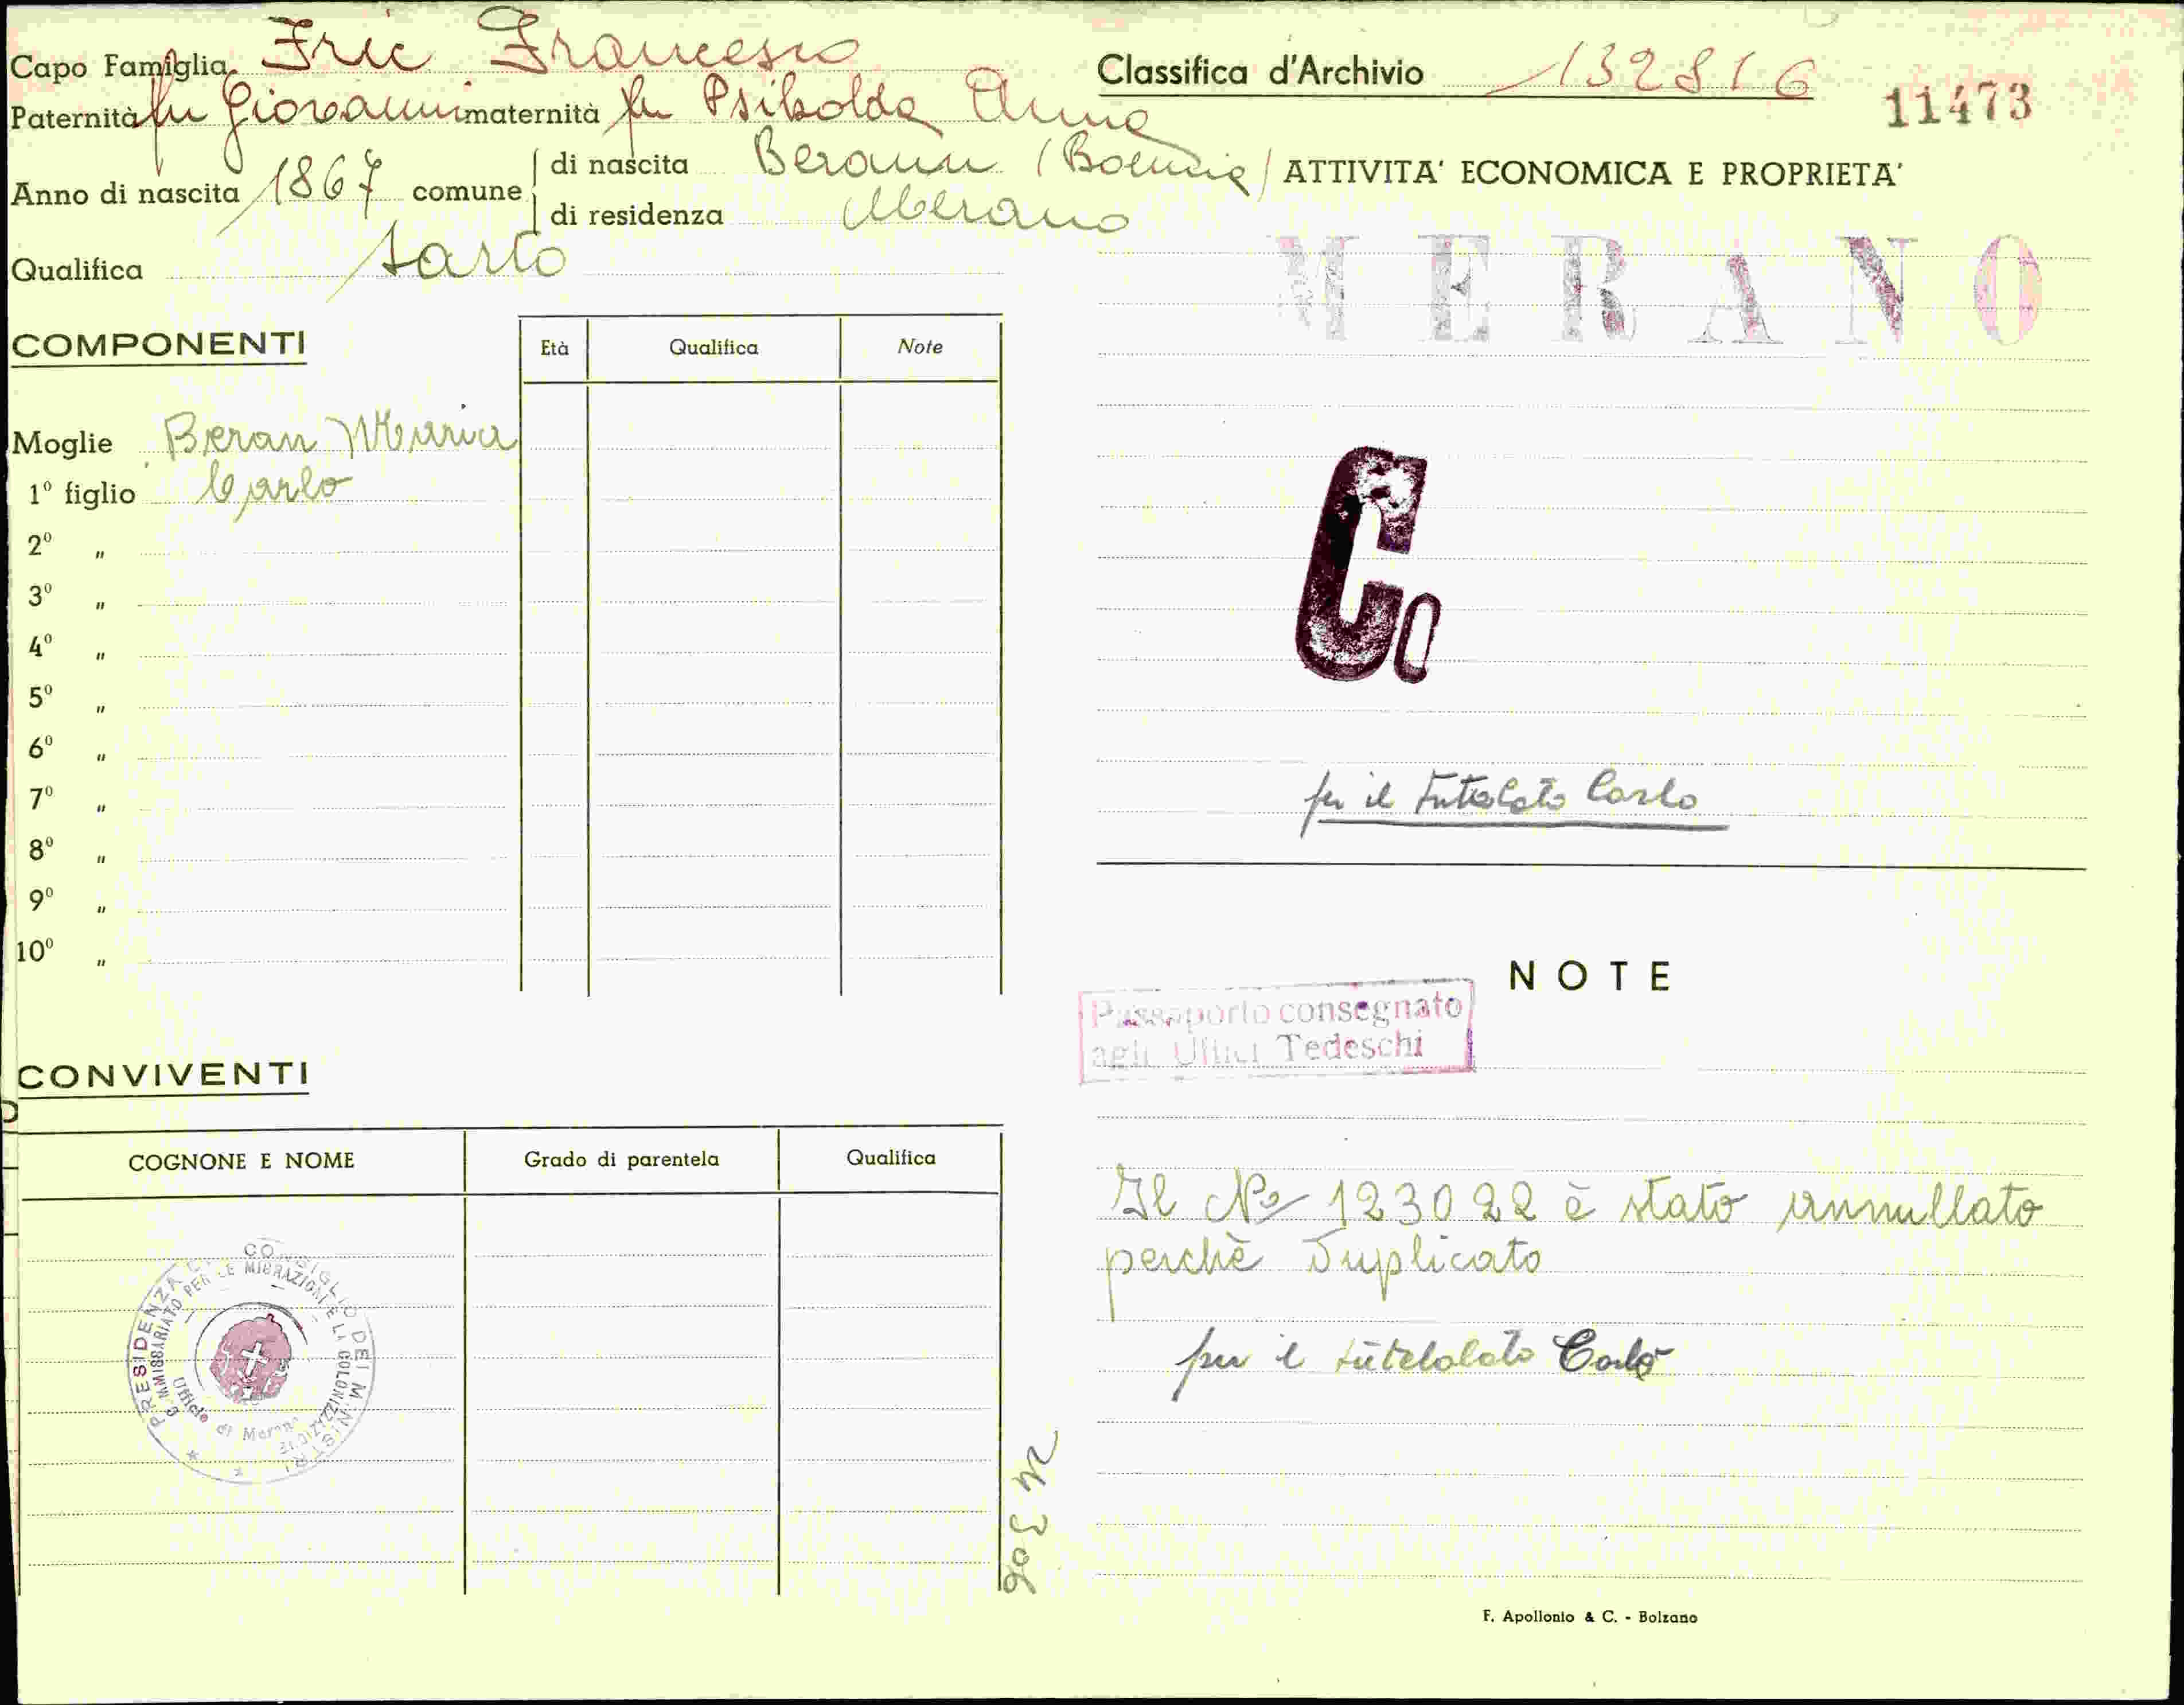 Capo Famiglia Fric Francesco
Paternità fu Giovanni maternità fu Psibolda Anna
Anno di nascita 1867 comune di nascita Beraun (Boemia)
di residenza Merano
Qualifica sarto
COMPONENTI
Età Qualifica Note
Moglie Beran Maria
1º figlio Carlo
2º "
3º "
4º "
5º "
6º "
7º "
8º "
9º "
10º "
CONVIVENTI
COGNONE E NOME Grado di parentela Qualifica
PRESIDENZA CONSIGLIO DEI MINISTRI
COMMISSARIATO PER LE MIGRAZIONI E LA COLONIZZAZIONE
Ufficio di Merano
M 306
Classifica d'Archivio 132816
11473
ATTIVITA' ECONOMICA E PROPRIETA'
MERANO
C0
per il tutelato Carlo
NOTE
Passaporto consegnato
agli Uffici Tedeschi
Il No 123022 è stato annullato
perchè duplicato
per il tutelato Carlo
F. Apollonio & C. - Bolzano